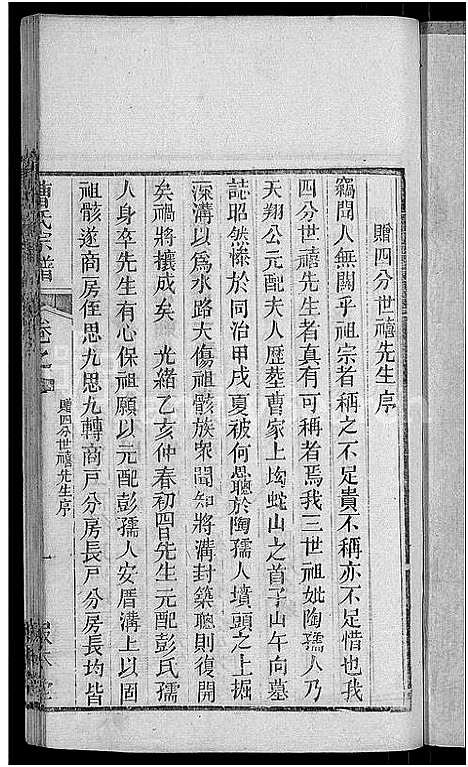 贈四分世禧先生序
竊聞人無關乎祖宗者稱之不足貴不稱亦不足惜也我
四分世禧先生者真有可稱者焉我三世祖妣陶孺人乃
天翔公元配夫人歷塟曹家上㘭蛇山之首子山午向墓
誌昭然慘於同治甲戌夏被何恩聽於陶孺人墳頭之上掘
深溝以為水路大傷祖骸族衆聞知將溝封築聽則復開
矣禍將攘成矣 光緒乙亥仲春初四日先生元配彭氏孺
人身卒先生有心保祖願以元配彭孺人安厝溝上以固
祖骸遂商房侄思九思九轉商戶分房長戶分房長均皆
曹氏宗譜
卷之
贈四分世禧先生序
一